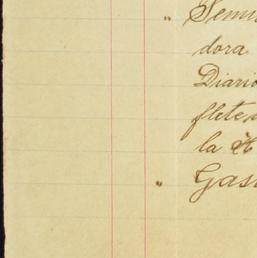 " Semi
dora
Diario
flete
la
" Gas